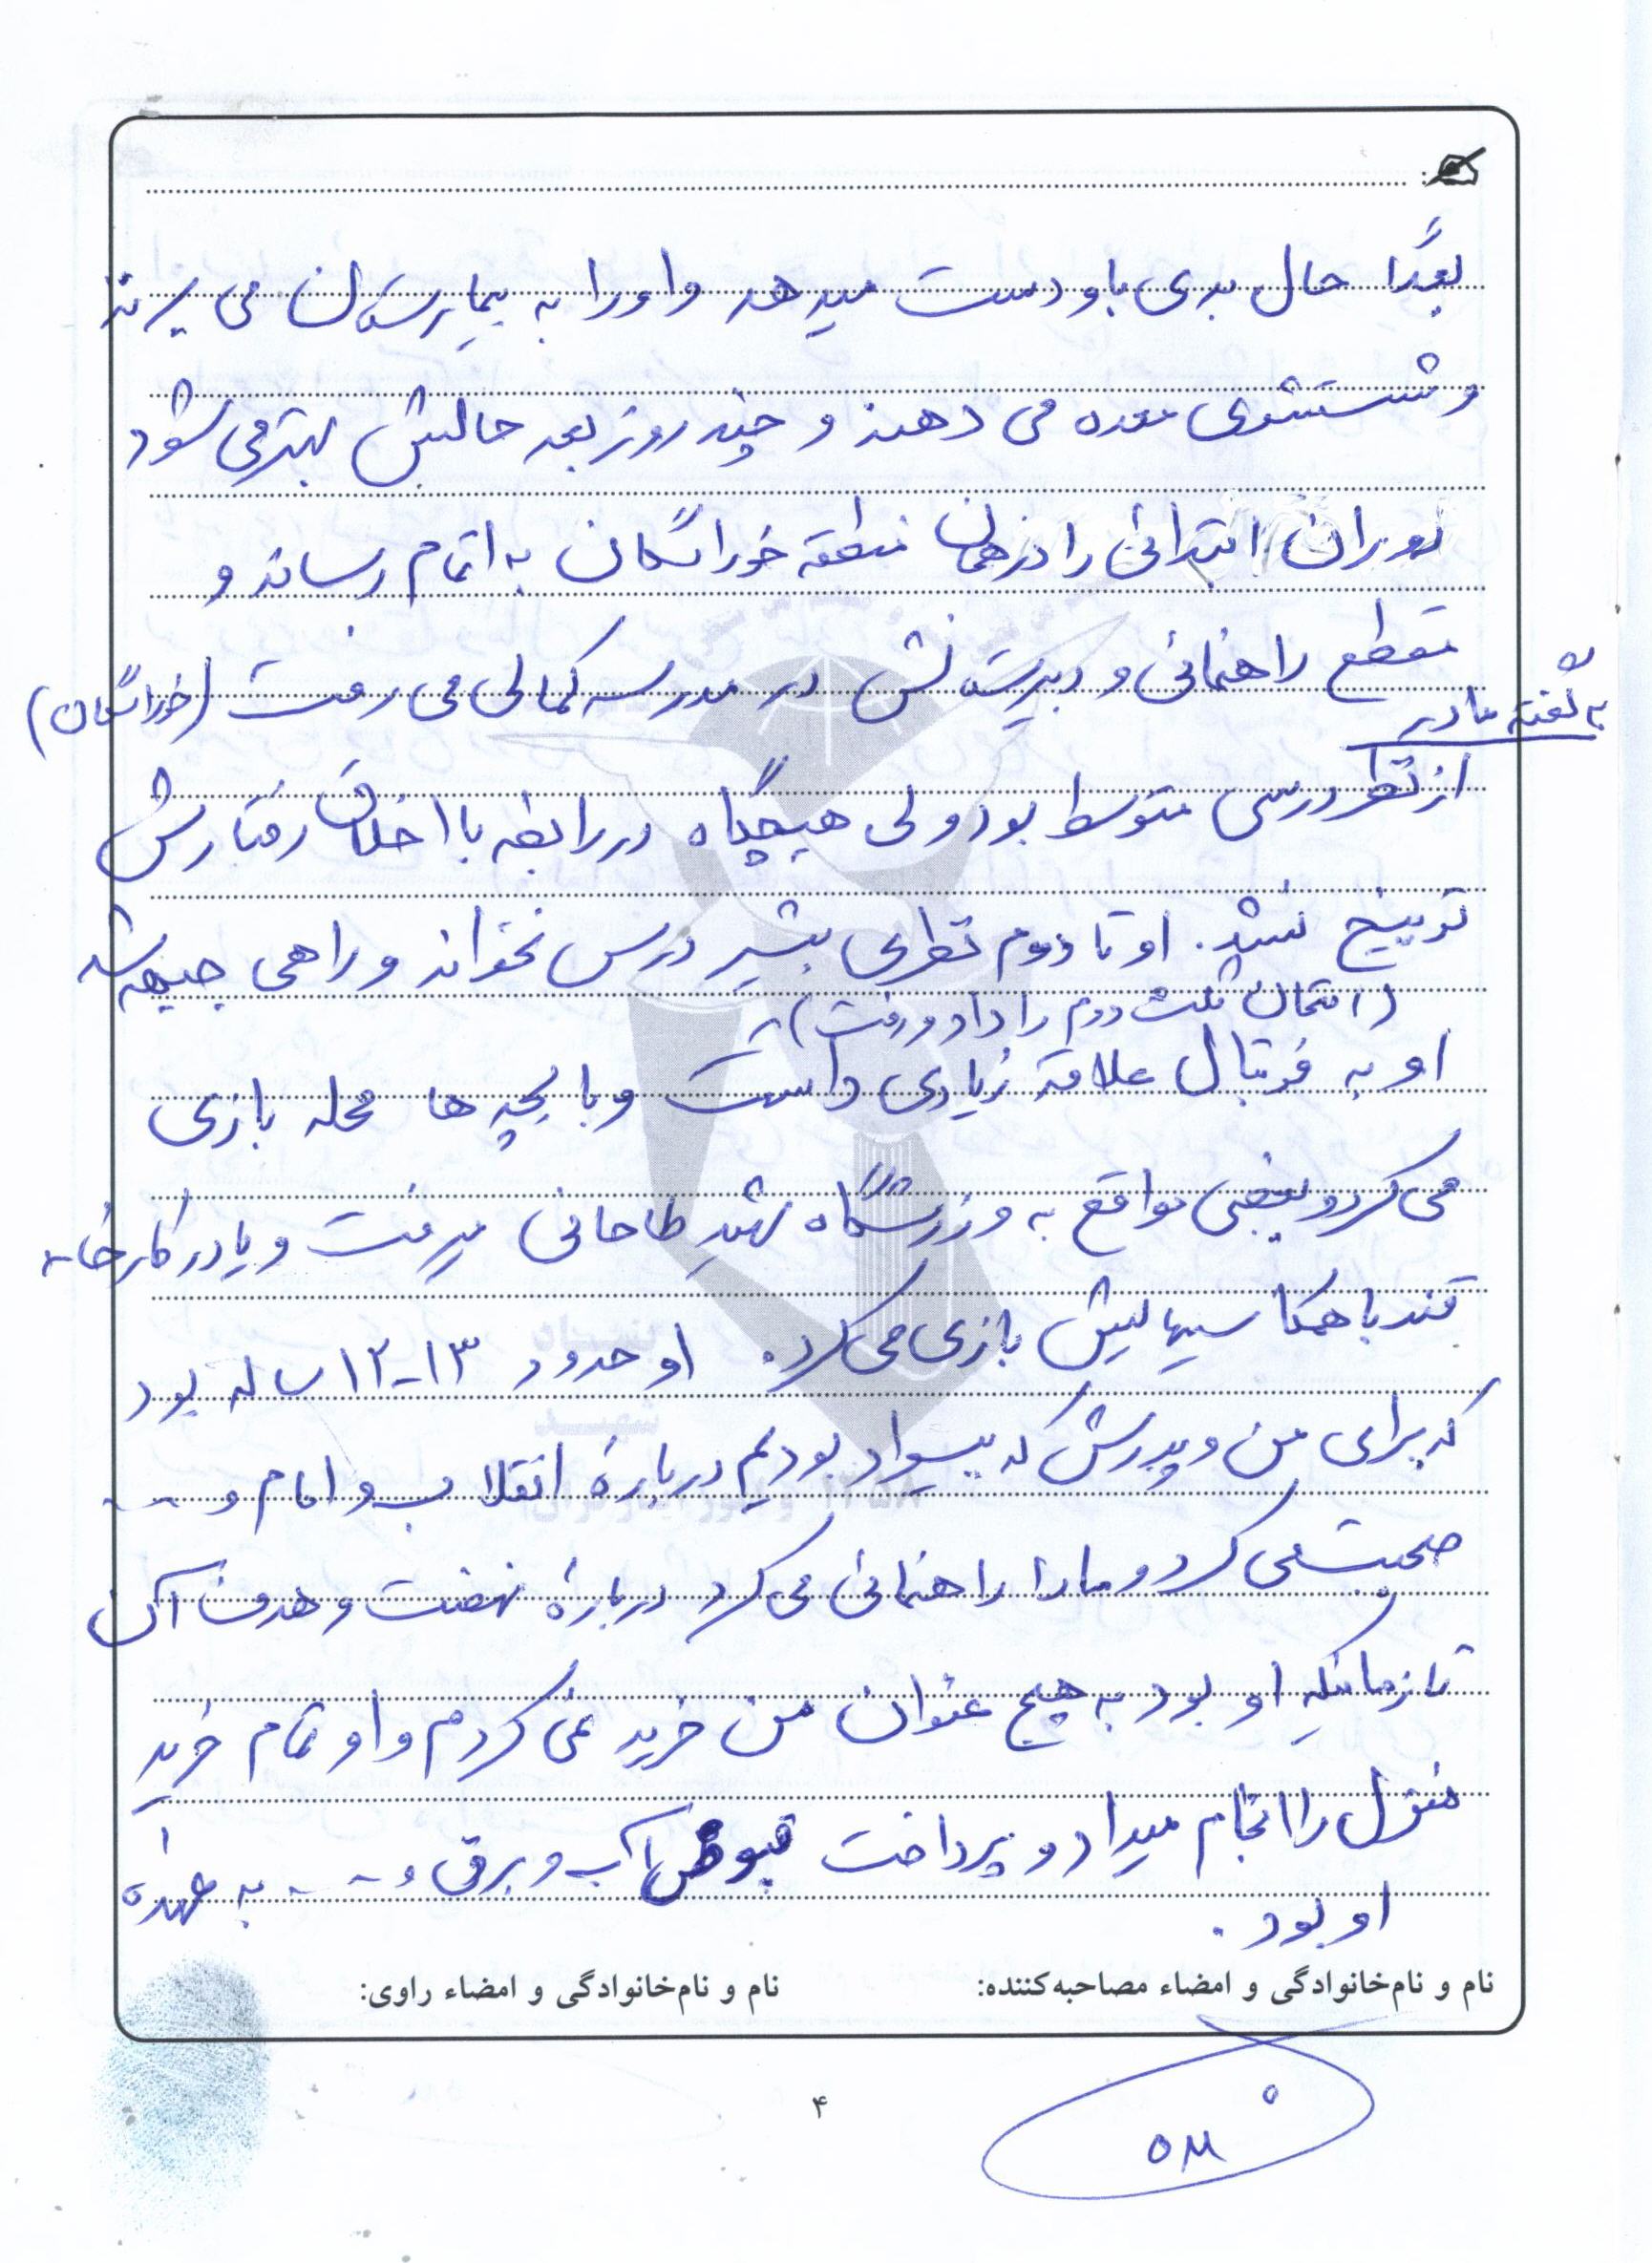 بعداً حال بدی باو دست میدهد و او را به بیمارستان می برند
و شستشوی معده می دهند و چند روز بعد حالش بهتر می شود
دوران ابتدائی را در همان منطقه خوراسگان به اتمام رساند و
مقطع راهنمائی و دبیرستانش در مدرسه کمالی می رفت (خوراسگان)
به گفته مادر
از نظر درسی متوسط بود ولی هیچگاه در رابطه با اخلاق رفتارش
توبیخ نشد. او تا دوم نظری بیشتر درس نخواند و راهی جبهه شد
(امتحان ثلث دوم را داد و رفت)
او به فوتبال علاقه زیادی داشت و با بچه ها محله بازی
می کرد و بعضی مواقع به ورزشگاه شهید طاحانی میرفت و یا در کارخانه
قند با همکلاسیهایش بازی می کرد. او حدود ۱۳-۱۲ ساله بود
که برای من و پدرش که بیسواد بودیم درباره انقلاب و امام و ---
صحبت می کرد و ما را راهنمائی می کرد درباره نهضت و هدف آن
تا زمانیکه او بود به هیچ عنوان من خرید نمی کردم و او تمام خرید
منزل را انجام میداد و پرداخت قبوض آب و برق و --- به عهده
او بود.
نام و نام‌خانوادگی و امضاء مصاحبه‌کننده:
نام و نام‌خانوادگی و امضاء راوی:
۴